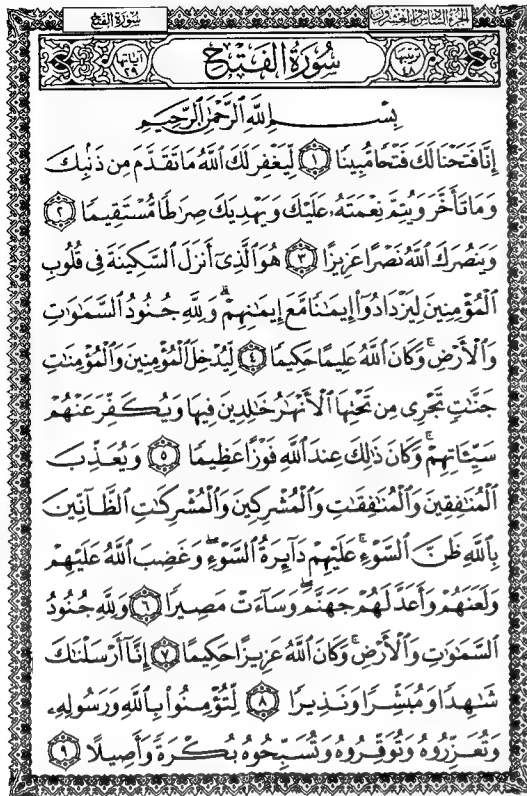 سورة الفتح
الجزء السادس والعشرون
آياتها ٢٩
سُورَةُ الفَتْحِ
ترتيبها ٤٨
بِسْمِ ٱللَّهِ ٱلرَّحْمَٰنِ ٱلرَّحِيمِ
إِنَّا فَتَحْنَا لَكَ فَتْحًا مُّبِينًا ١ لِّيَغْفِرَ لَكَ ٱللَّهُ مَا تَقَدَّمَ مِن ذَنۢبِكَ
وَمَا تَأَخَّرَ وَيُتِمَّ نِعْمَتَهُۥ عَلَيْكَ وَيَهْدِيَكَ صِرَٰطًا مُّسْتَقِيمًا ٢
وَيَنصُرَكَ ٱللَّهُ نَصْرًا عَزِيزًا ٣ هُوَ ٱلَّذِىٓ أَنزَلَ ٱلسَّكِينَةَ فِى قُلُوبِ
ٱلْمُؤْمِنِينَ لِيَزْدَادُوٓا۟ إِيمَٰنًا مَّعَ إِيمَٰنِهِمْ ۗ وَلِلَّهِ جُنُودُ ٱلسَّمَٰوَٰتِ
وَٱلْأَرْضِ ۚ وَكَانَ ٱللَّهُ عَلِيمًا حَكِيمًا ٤ لِّيُدْخِلَ ٱلْمُؤْمِنِينَ وَٱلْمُؤْمِنَٰتِ
جَنَّٰتٍ تَجْرِى مِن تَحْتِهَا ٱلْأَنْهَٰرُ خَٰلِدِينَ فِيهَا وَيُكَفِّرَ عَنْهُمْ
سَيِّـَٔاتِهِمْ ۚ وَكَانَ ذَٰلِكَ عِندَ ٱللَّهِ فَوْزًا عَظِيمًا ٥ وَيُعَذِّبَ
ٱلْمُنَٰفِقِينَ وَٱلْمُنَٰفِقَٰتِ وَٱلْمُشْرِكِينَ وَٱلْمُشْرِكَٰتِ ٱلظَّآنِّينَ
بِٱللَّهِ ظَنَّ ٱلسَّوْءِ ۚ عَلَيْهِمْ دَآئِرَةُ ٱلسَّوْءِ ۖ وَغَضِبَ ٱللَّهُ عَلَيْهِمْ
وَلَعَنَهُمْ وَأَعَدَّ لَهُمْ جَهَنَّمَ ۖ وَسَآءَتْ مَصِيرًا ٦ وَلِلَّهِ جُنُودُ
ٱلسَّمَٰوَٰتِ وَٱلْأَرْضِ ۚ وَكَانَ ٱللَّهُ عَزِيزًا حَكِيمًا ٧ إِنَّآ أَرْسَلْنَٰكَ
شَٰهِدًا وَمُبَشِّرًا وَنَذِيرًا ٨ لِّتُؤْمِنُوا۟ بِٱللَّهِ وَرَسُولِهِۦ
وَتُعَزِّرُوهُ وَتُوَقِّرُوهُ وَتُسَبِّحُوهُ بُكْرَةً وَأَصِيلًا ٩